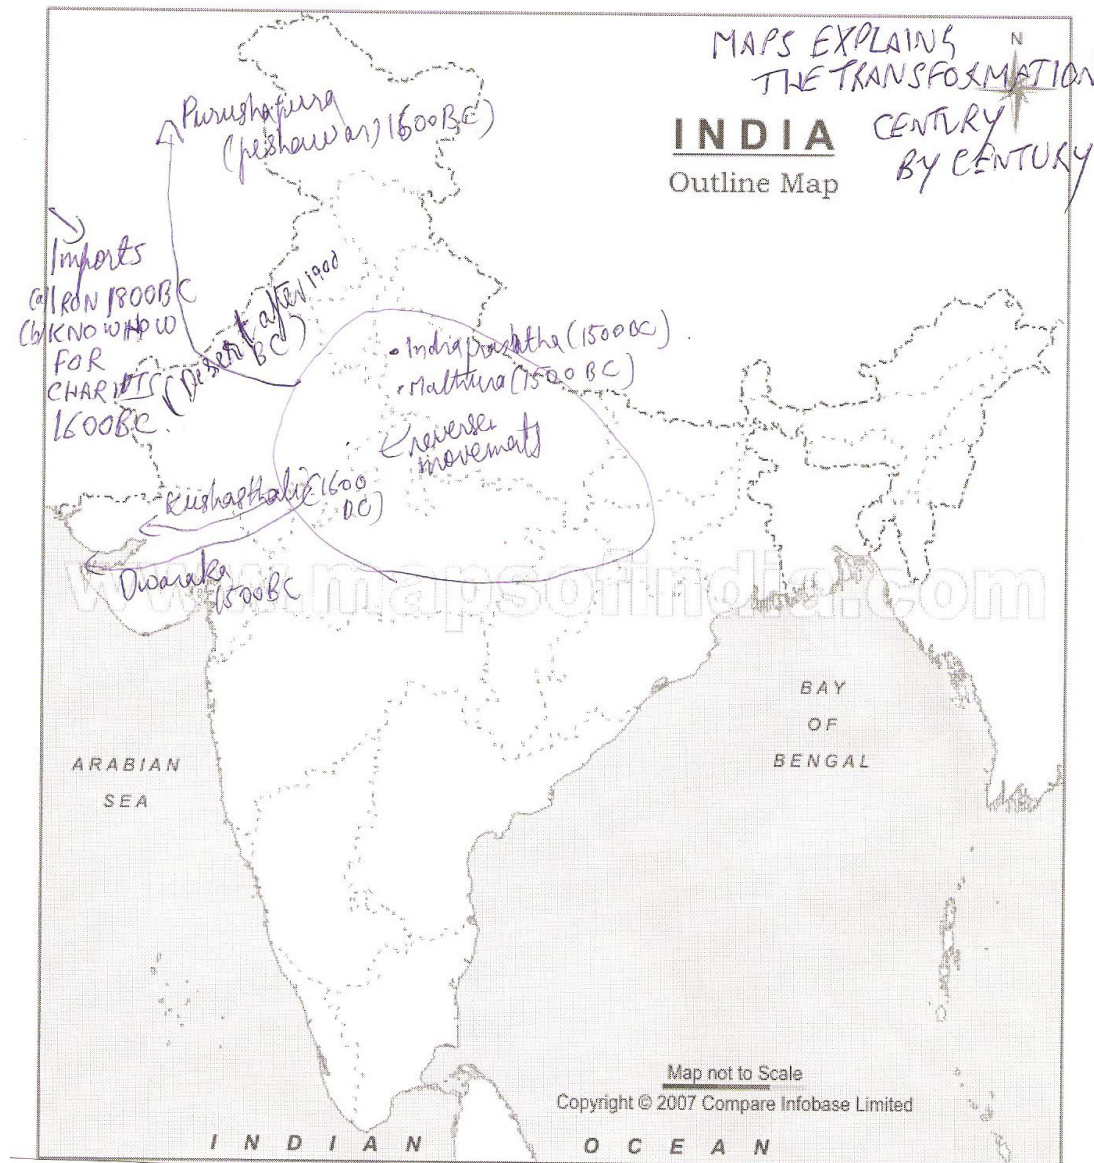 MAPS EXPLAINS
THE TRANSFORMATION
CENTURY
BY CENTURY
N
INDIA
Outline Map
Purushapura
(peshawar) 1600BC)
Imports
(a) IRON 1800BC
(b) KNOWHOW
FOR
CHARIOTS
1600BC.
(Desert after 1900
BC)
• Indraprashtha (1500BC)
• Mathura (1500BC)
reverse
movements
Kushasthali (1600
BC)
Dwaraka
1500BC
www.mapsofindia.com
BAY
OF
BENGAL
ARABIAN
SEA
Map not to Scale
Copyright © 2007 Compare Infobase Limited
INDIAN OCEAN